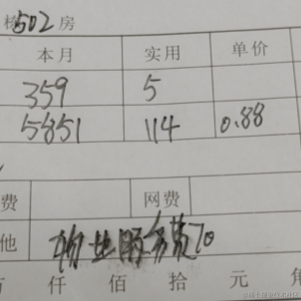 栋502房
本月 实用 单价
359 5
5851 114 0.88
费 网费
他 物业服务费70
万 仟 佰 拾 元 角